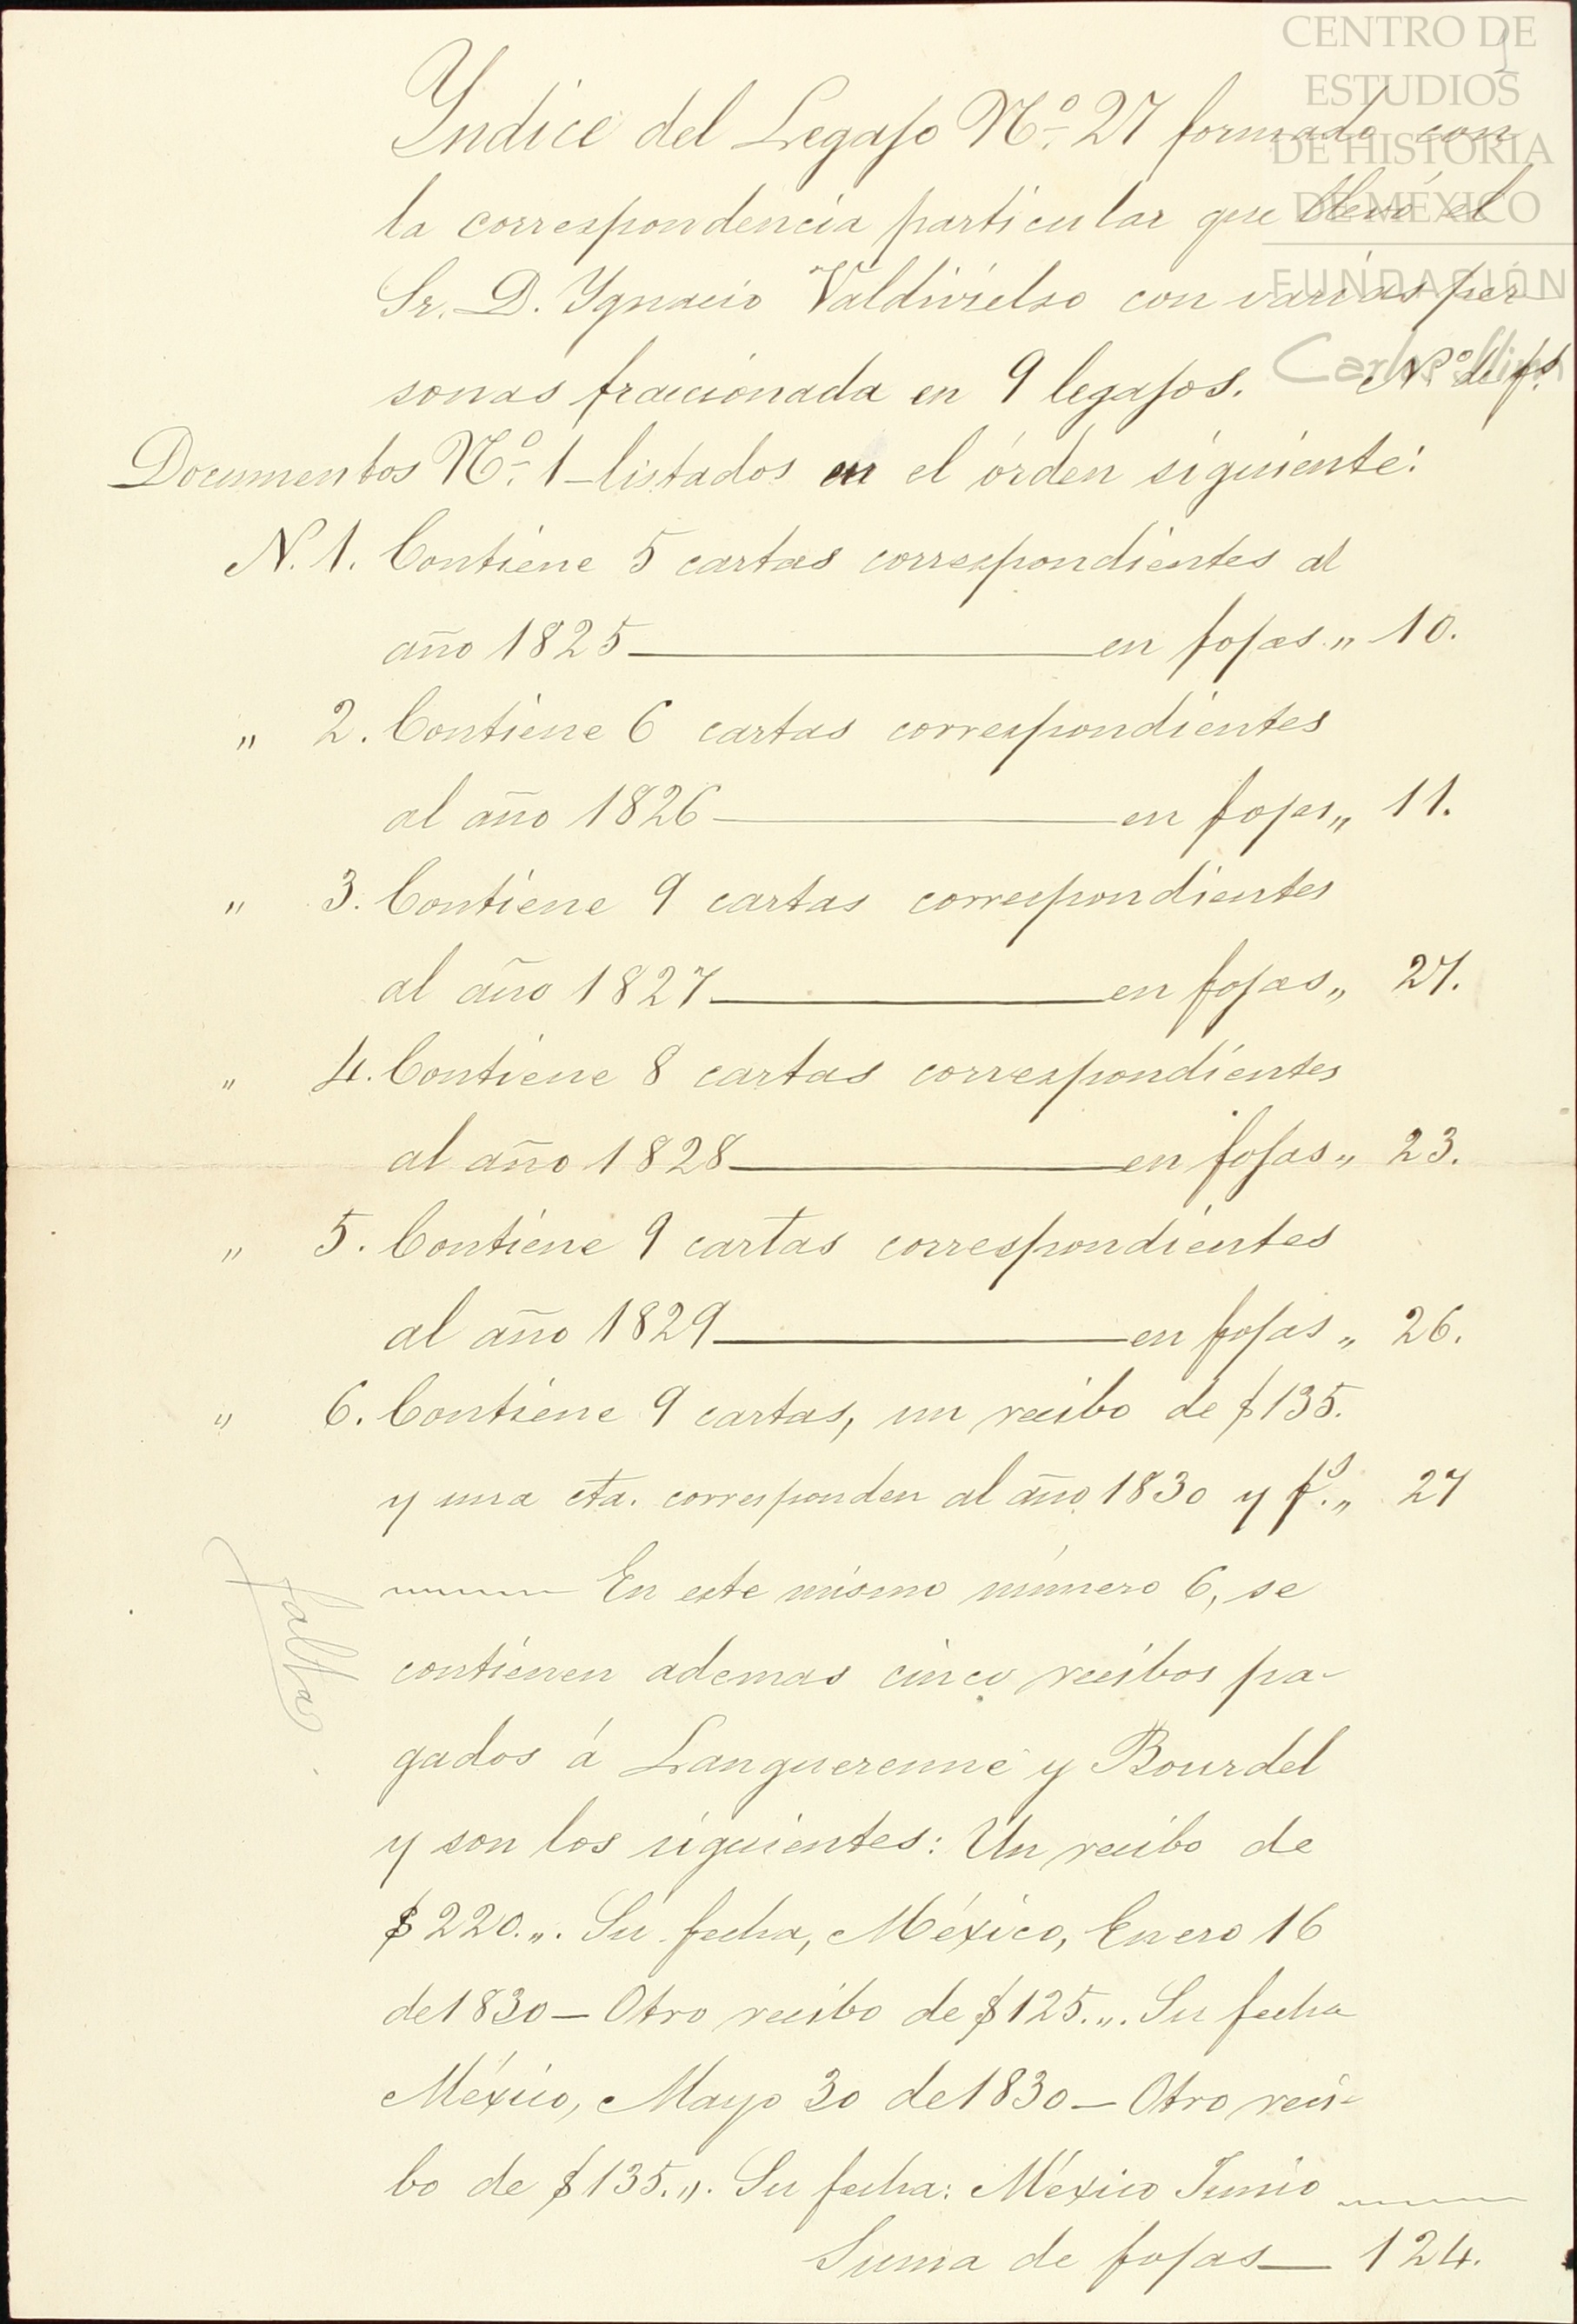 CENTRO DE
ESTUDIOS
DE HISTORIA
DE MÉXICO
FUNDACIÓN
Carlos Slim
1
Yndice del Legajo Nº. 27 formado con
la correspondencia particular que llevó el
Sr. D. Ygnacio Valdivielso con varias per
sonas fraccionada en 9 legajos. Nº. de fs.
Documentos Nº. 1 listados en el órden siguiente:
N. 1. Contiene 5 cartas correspondientes al
año 1825 en fojas „ 10.
„ 2. Contiene 6 cartas correspondientes
al año 1826 en fojas „ 11.
„ 3. Contiene 9 cartas correspondientes
al año 1827 en fojas „ 27.
„ 4. Contiene 8 cartas correspondientes
al año 1828 en fojas „ 23.
„ 5. Contiene 9 cartas correspondientes
al año 1829 en fojas „ 26.
„ 6. Contiene 9 cartas, un recibo de $135.
y una cta. corresponden al año 1830 y fs. „ 27
En este mismo número 6, se
contienen ademas cinco recibos pa-
gados á Languerenne y Bourdel
y son los siguientes: Un recibo de
$220.„. Su fecha, México, Enero 16
de 1830 — Otro recibo de $125.„. Su fecha
México, Mayo 30 de 1830 — Otro reci-
bo de $135.„. Su fecha: México Junio
Suma de fojas — 124.
falta